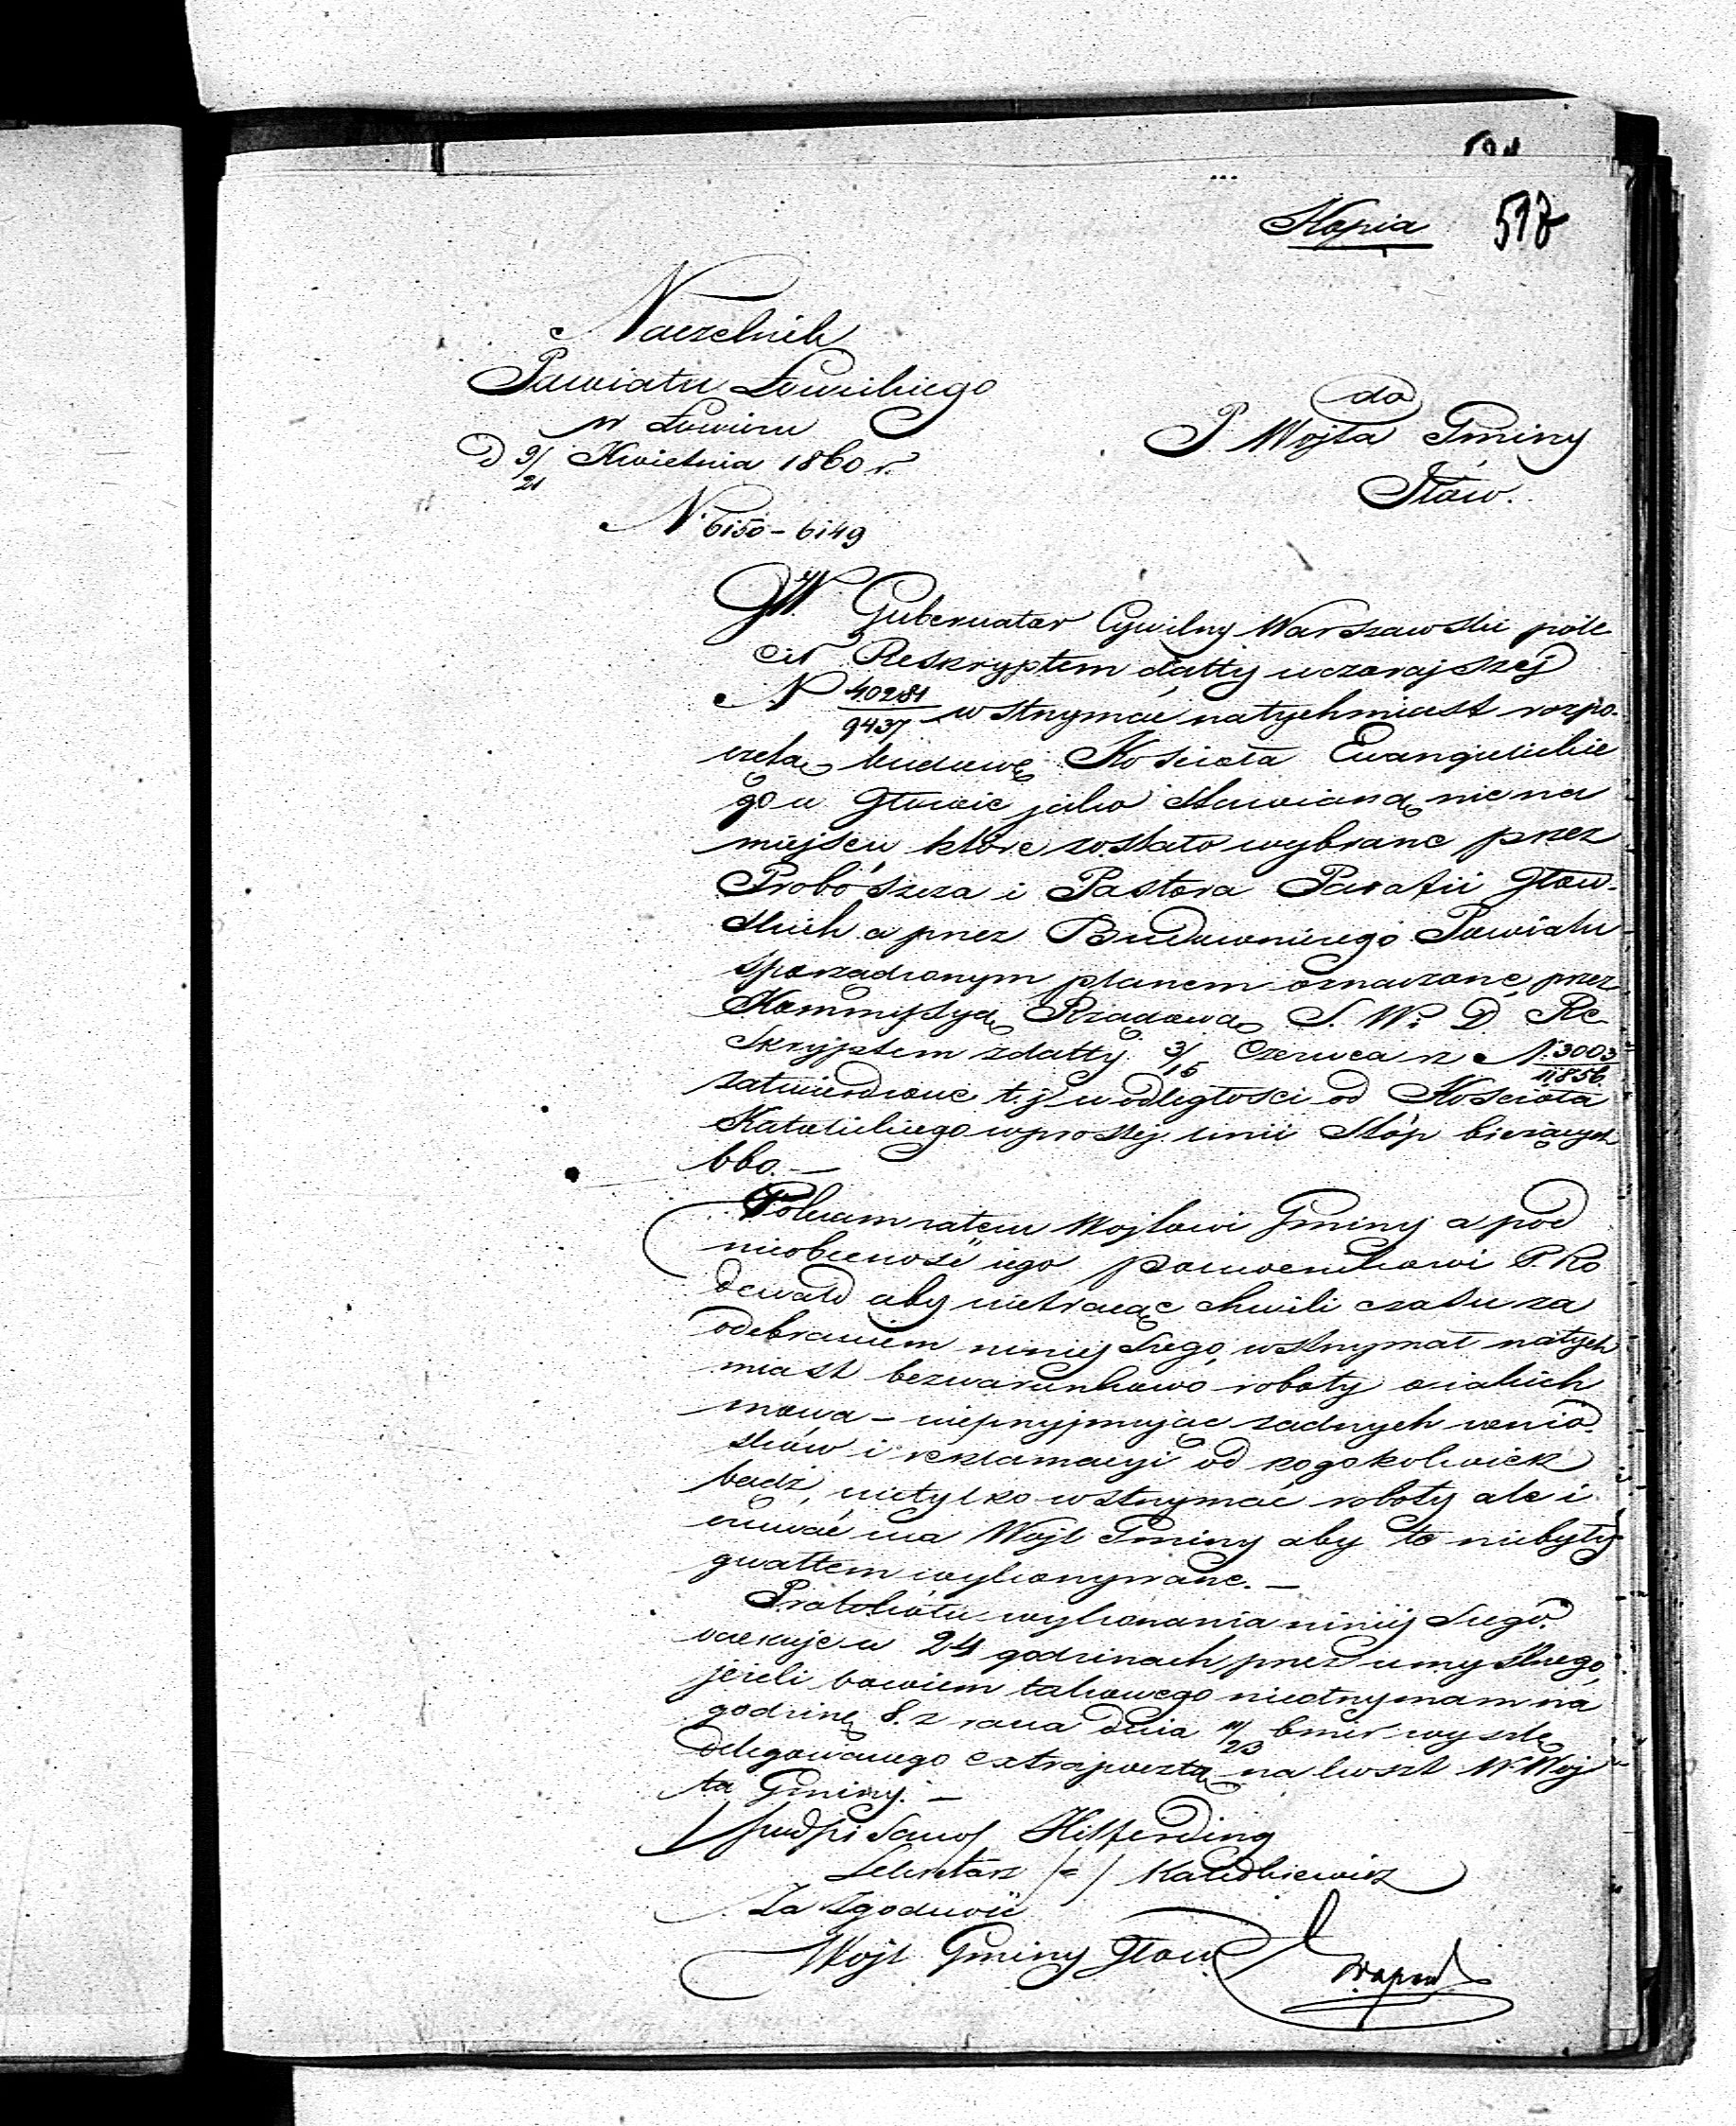 Kopia 518
Naczelnik
Powiatu Łowickiego
w Łowiczu
D 9/21 Kwietnia 1860 r.
N. 6150 - 6149
do
P Wojta Gminy
Iłów.
JW. Gubernator Cywilny Warszawski pole
cił Reskryptem datty wczorajszej
N 40281/9437 wstrzymać natychmiast rozpo-
czętą budowę Kościoła Ewangielickie
go w Iłowie jako stawianą nie na
miejscu które zostało wybrane przez
Proboszcza i Pastora Parafii Iłow-
skich a przez Budowniczego Powiatu
sporządzonym planem oznaczone przez
Kommissyą Rządową S. W. D. Re
skryptem z datty 3/15 Czerwca r z N. 3003/11,856
zatwierdzone t. j. w odległości od Kościoła
Katolickiego w prostej linii stóp bieżących
660. —
Polecam zatem Wojtowi Gminy a pod
nieobecność iego pomocnikowi P. Ro
dewald aby nietracąc chwili czasu za
odebraniem niniejszego, wstrzymał natych
miast bezwarunkowo roboty o iakich
mowa - nieprzyjmując żadnych wnio
sków i reklamacyi od kogokolwiek
bądź, nietylko wstrzymać roboty ale i
czuwać ma Wojt Gminy aby te niebyły
gwałtem wykonywane. —
Protokółu wykonania niniejszego
oczekuję w 24 godzinach przez umyślnego,
jeżeli bowiem takowego nieotrzymam na
godzinę 8. z rana dnia 11/23 bmir wyszlę
delegowanego extrapocztą na koszt W. Woj
ta Gminy. —
/ podpisano / Hilferding
Sekretarz /=/
Za zgodność
Wojt Gminy Iłow